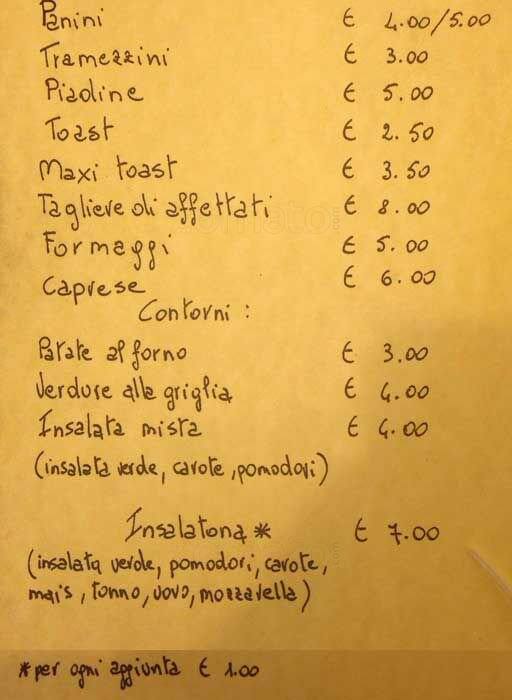 Panini € 4.00/5.00
Tramezzini € 3.00
Piadine € 5.00
Toast € 2.50
Maxi toast € 3.50
Tagliere di affettati € 8.00
Formaggi € 5.00
Caprese € 6.00
Contorni :
Patate al forno € 3.00
Verdure alla griglia € 4.00
Insalata mista € 4.00
(insalata verde, carote, pomodori)
Insalatona * € 7.00
(insalata verde, pomodori, carote,
mais, tonno, uovo, mozzarella)
*per ogni aggiunta € 1.00